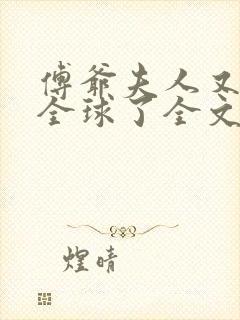 傅爷夫人又
全球了全文
煌晴